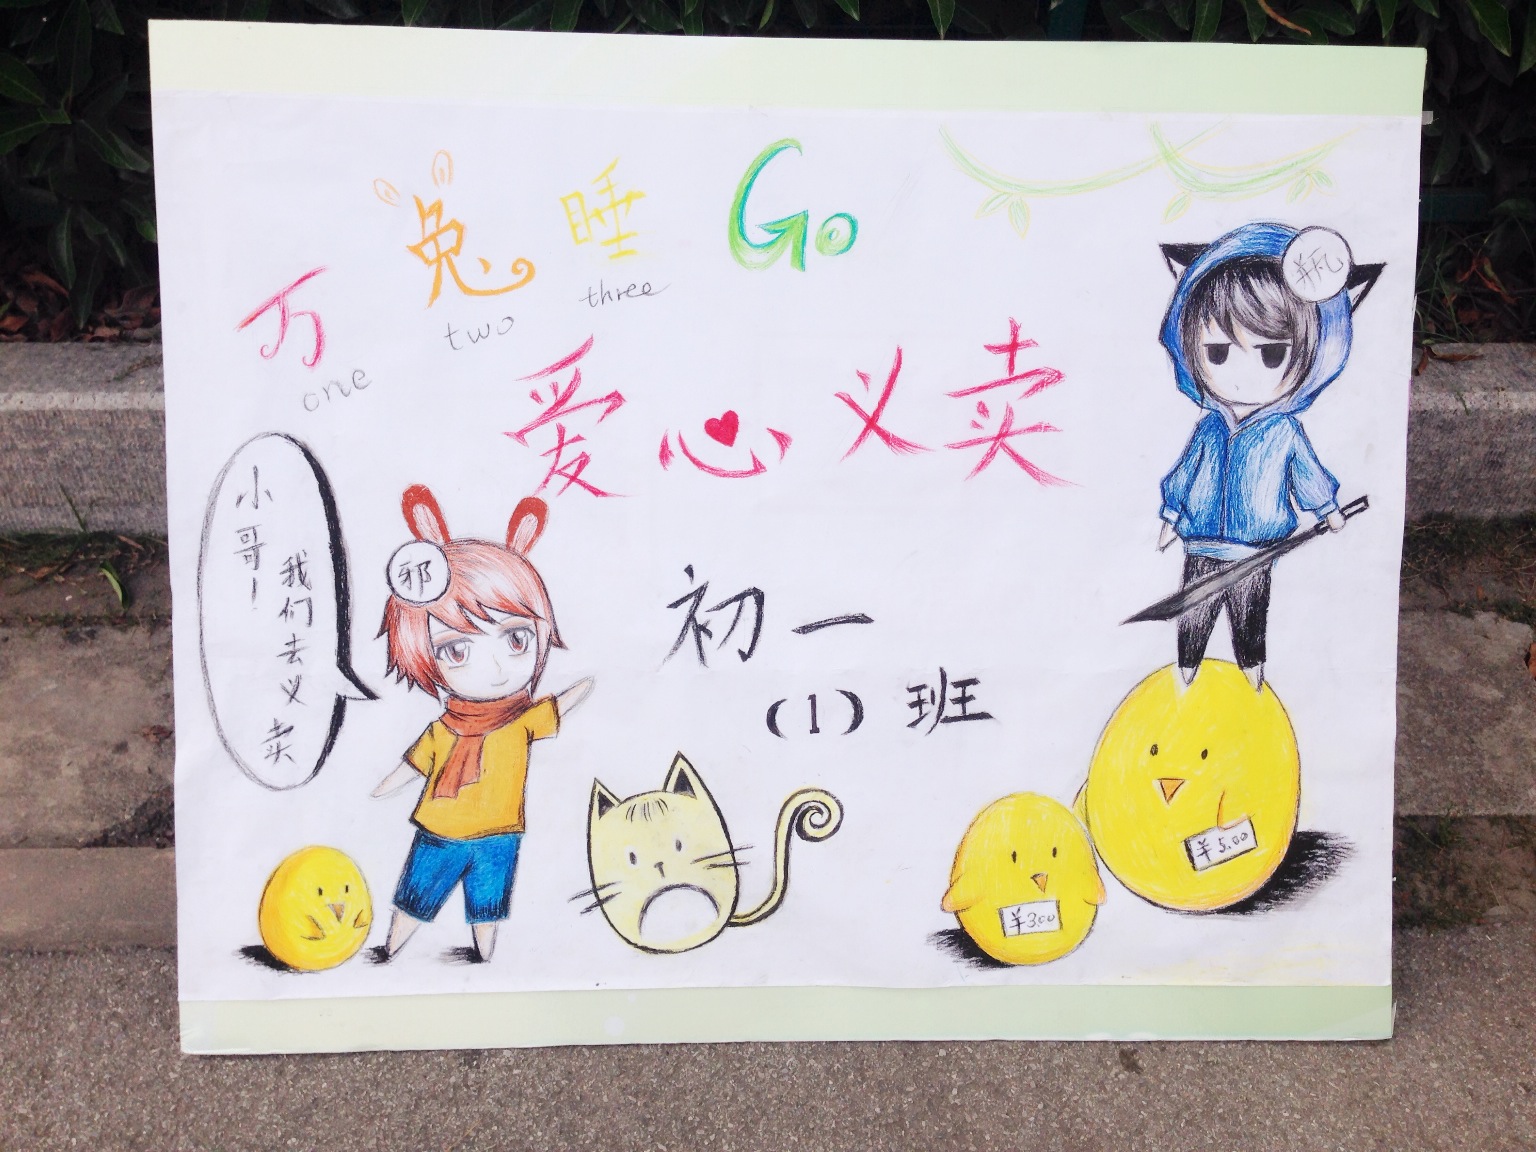 万 兔 睡 Go
one two three
爱心义卖
小哥!
我们去义卖
邪
瓶
初一
(1)班
¥3.00
¥5.00